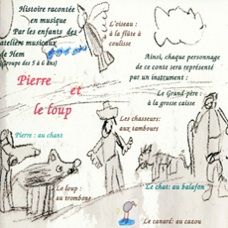 Histoire racontée
en musique
Par les enfants des
ateliers musicaux
de Hem
(Groupe des 5 à 6 ans)
L'oiseau :
à la flûte à
coulisse
Ainsi, chaque personnage
de ce conte sera représenté
par un instrument :
Pierre
et
le loup
Le Grand père :
à la grosse caisse
Les chasseurs:
aux tambours
Pierre : au chant
Le loup :
au trombone
Le chat: au balafon
Le canard: au cazou